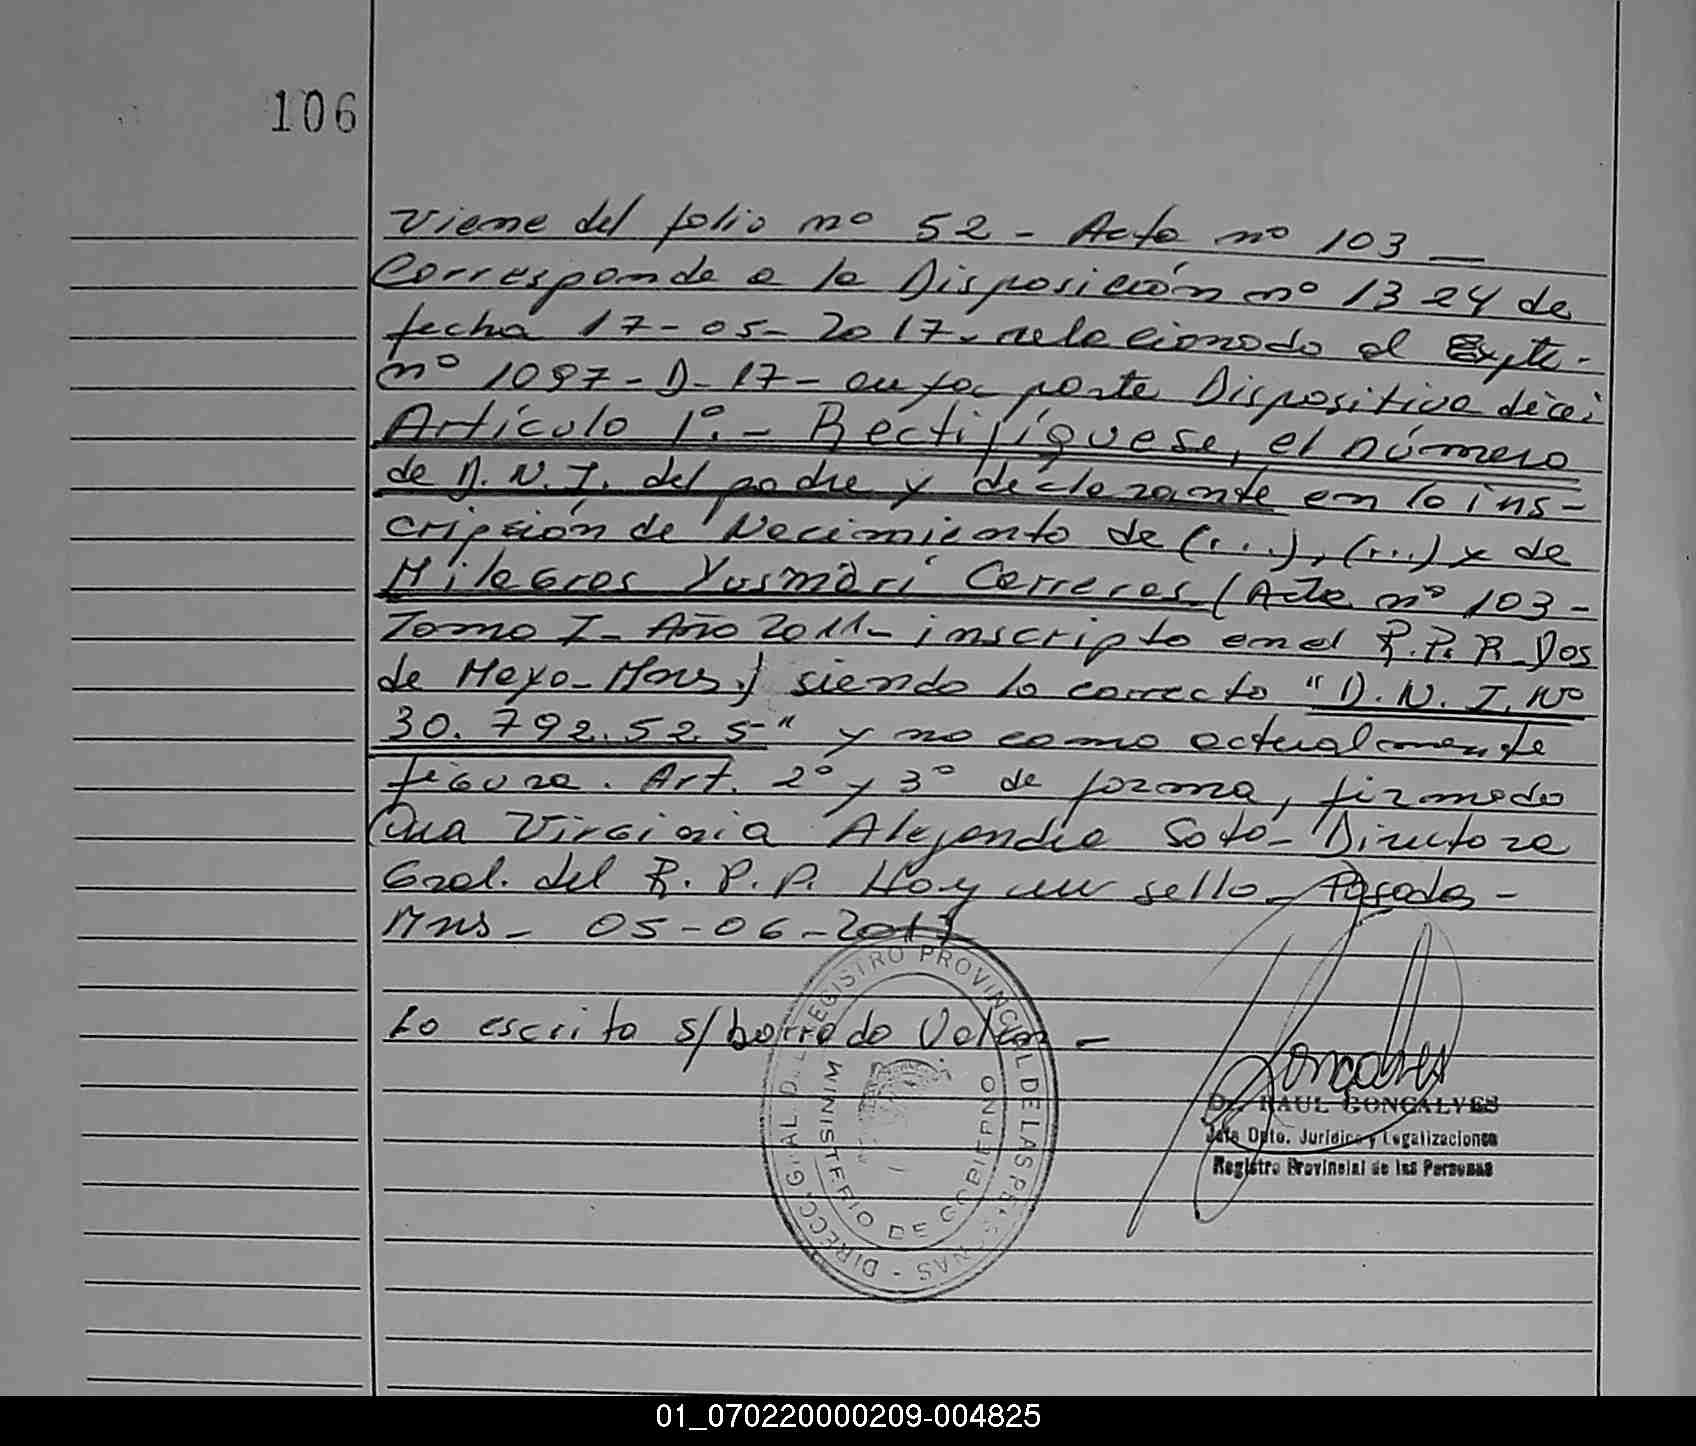 106
Viene del folio nº 52 - Acta nº 103 —
Corresponde a la Disposición nº 1324 de
fecha 17-05-2017- relacionado al Expte-
nº 1097-D-17- cuya parte Dispositiva dice:
Artículo 1º.- Rectifíquese, el número
de D.N.I. del padre y declarante en la ins-
cripción de Nacimiento de (...), (...) y de
Milagros Yusmari Carreras (Acta nº 103-
Tomo I- Año 2011- inscripto en el R.P.P. Dos
de Mayo-Mns.) siendo lo correcto "D.N.I. Nº
30.792.525-" y no como actualmente
figura. Art. 2º y 3º de forma, firmado
Dra Virginia Alejandra Soto- Directora
Gral. del R.P.P. Hay un sello- Posadas-
Mns- 05-06-2017
Lo escrito s/borrado Valen -
DIRECC. GRAL. DEL REGISTRO PROVINCIAL DE LAS PERSONAS -
MINISTERIO DE GOBIERNO
Dr. RAUL GONCALVES
Jefe Dpto. Jurídico y Legalizaciones
Registro Provincial de las Personas
01_070220000209-004825